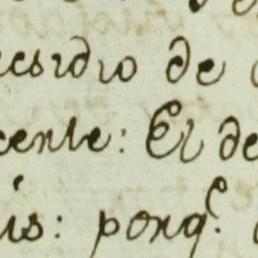 ecsidio de
cente: El de
is: porq.e